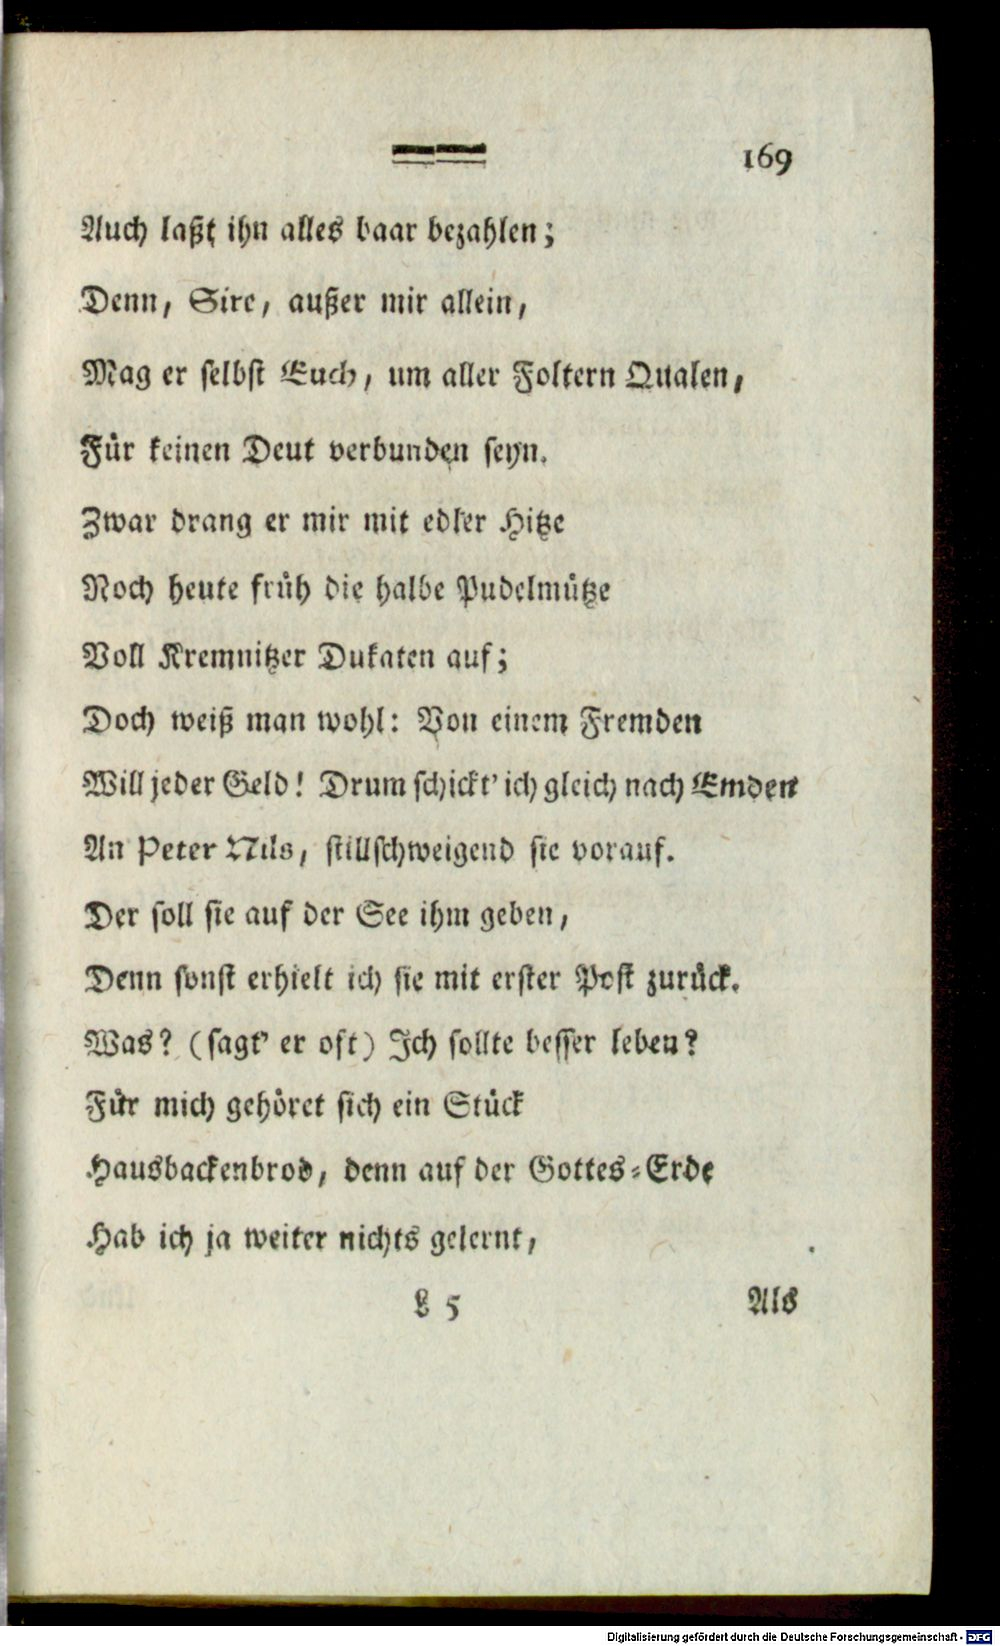 169
Auch laßt ihn alles baar bezahlen;
Denn, Sire, außer mir allein,
Mag er selbst Euch, um aller Foltern Qualen,
Für keinen Deut verbunden seyn.
Zwar drang er mir mit edler Hitze
Noch heute früh die halbe Pudelmütze
Voll Kremnitzer Dukaten auf;
Doch weiß man wohl: Von einem Fremden
Will jeder Geld! Drum schickt' ich gleich nach Emden
An Peter Nils, stillschweigend sie vorauf.
Der soll sie auf der See ihm geben,
Denn sonst erhielt ich sie mit erster Post zurück.
Was? (sagt' er oft) Ich sollte besser leben?
Für mich gehöret sich ein Stück
Hausbackenbrod, denn auf der Gottes-Erde
Hab ich ja weiter nichts gelernt,
L 5 Als
Digitalisierung gefördert durch die Deutsche Forschungsgemeinschaft - DFG